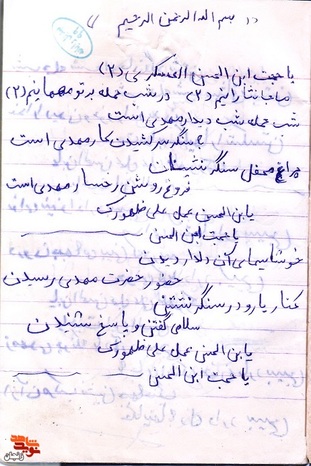 بسم الله الرحمن الرحیم
یا حجت ابن الحسن العسکری (۲)
ما جانثارانیم (۲) در شب حمله بر تو مهمانیم (۲)
شب حمله شب دیدار مهدی است
سنگر کشیدن کار مهدی است
چراغ محفل سنگر نشینان
فروغ روشن رخسار مهدی است
یابن الحسن عجل علی ظهورک
یا حجت ابن الحسن
خوشا سیمای آن دلدار دیدن
حضور حضرت مهدی رسیدن
کنار یار و در سنگر نشستن
سلامی گفتن و پاسخ شنیدن
یابن الحسن عجل علی ظهورک
یا حجت ابن الحسن